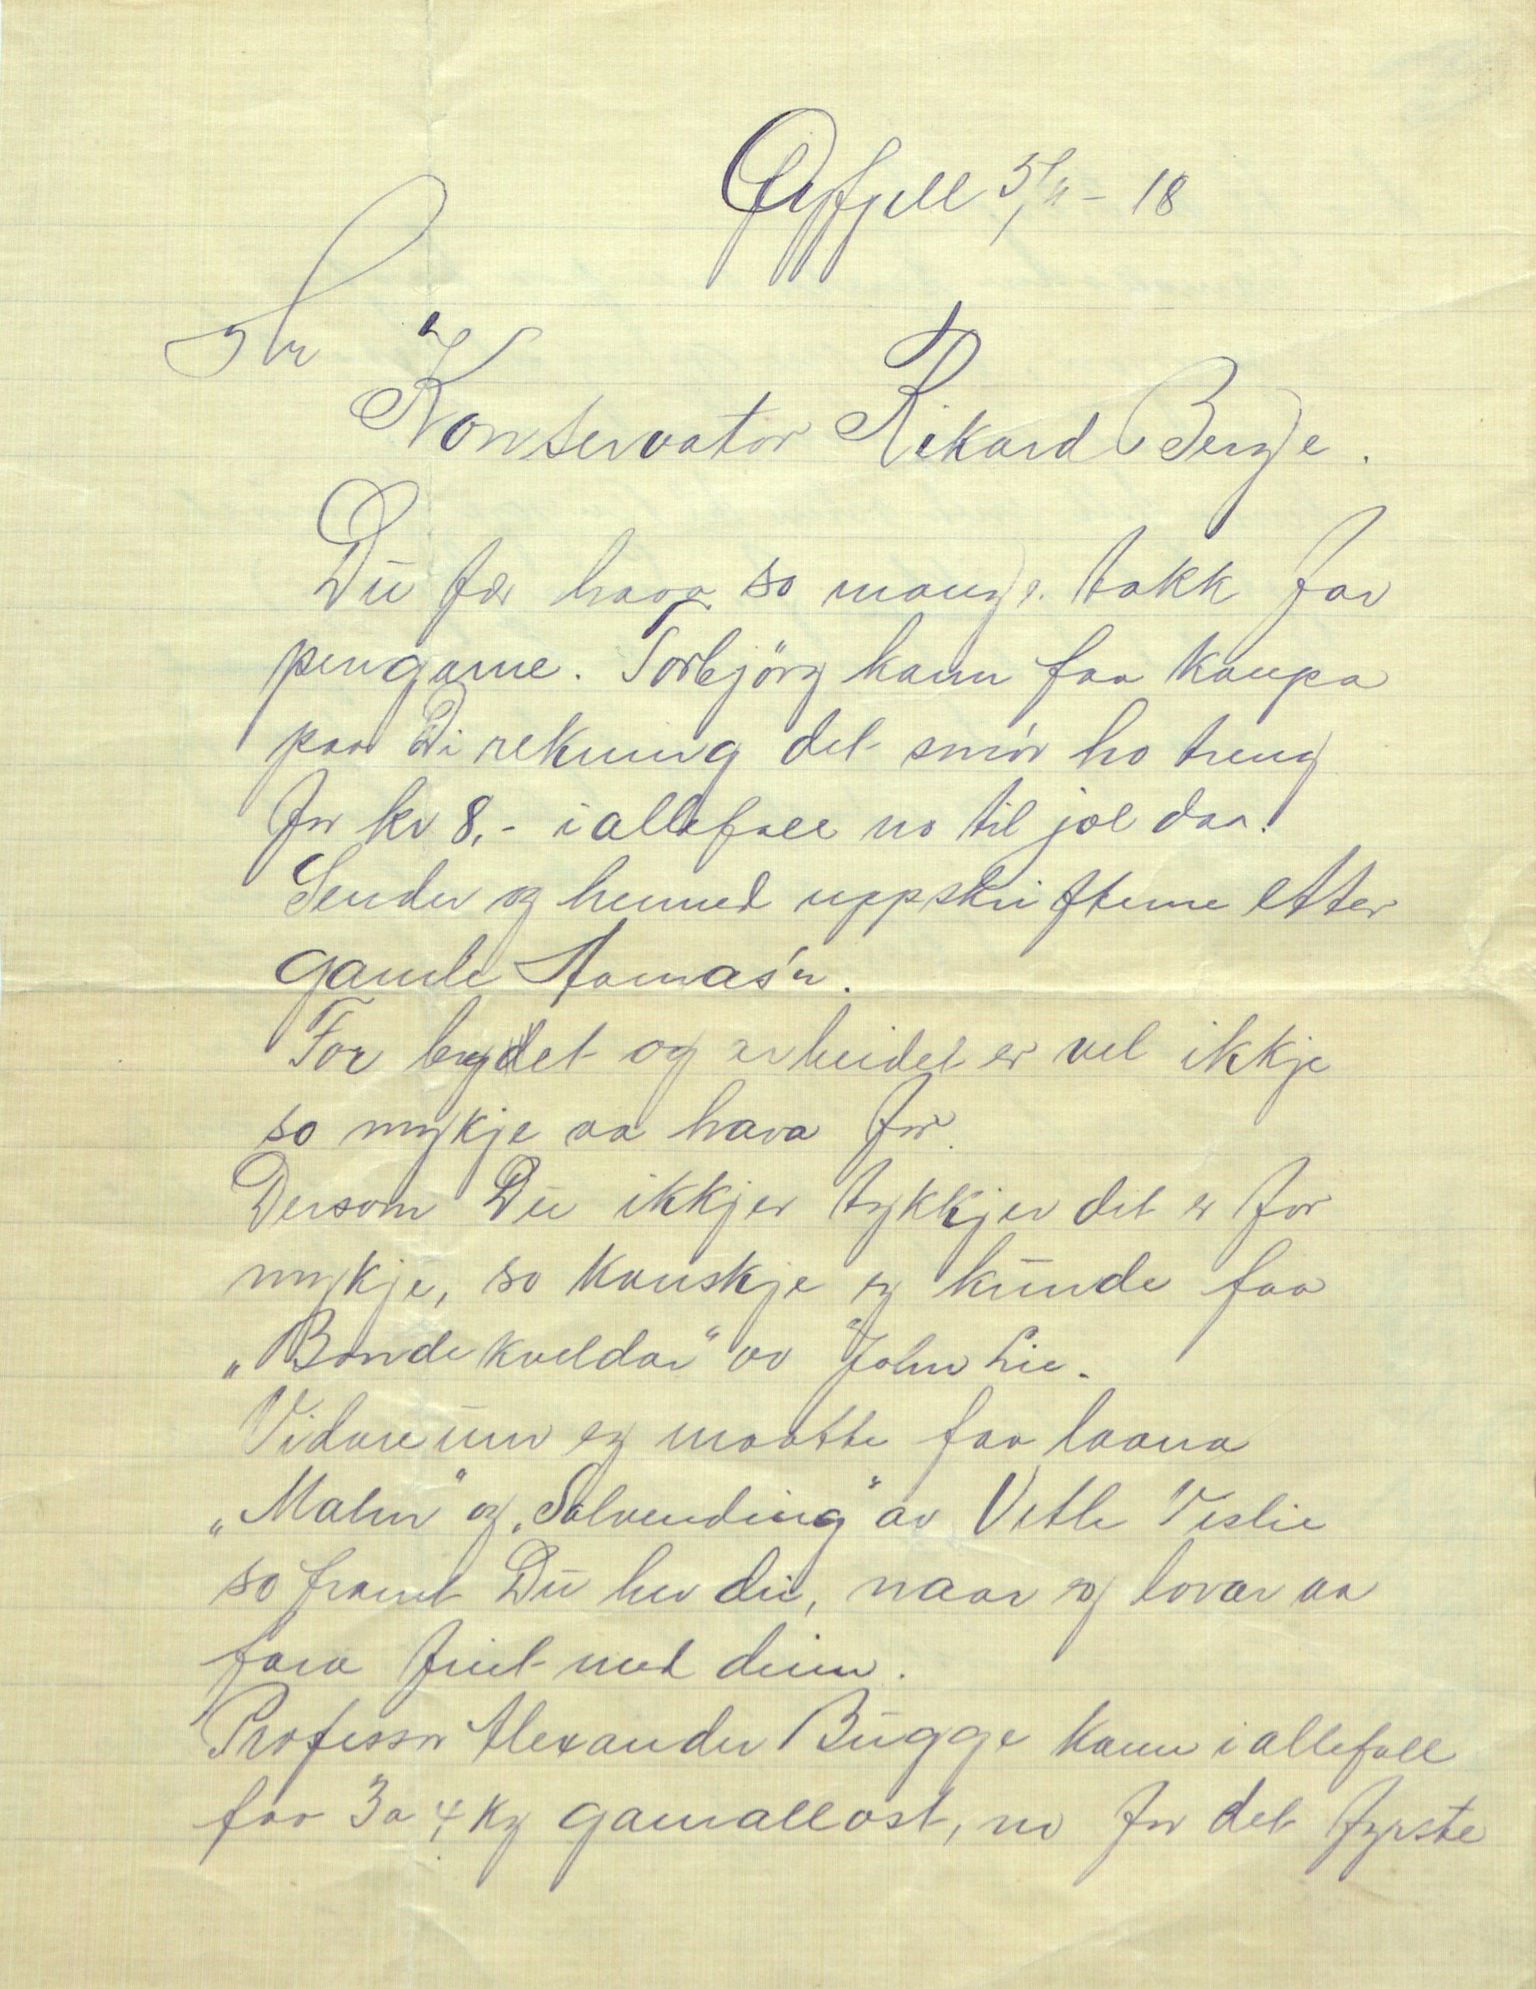 Øyfjell 5/11 – 18
Hr
Konservator Rikard Berge.
Du fær hava so mange takk for
pengarne. Torbjörg kann faa kaupa
paa Di rekning det smör ho treng
for kr 8,- i allefall no til jol daa.
Sender og hermed uppskrifterne etter
gamle Aamas'n.
For brydet og arbeidet er vel ikkje
so mykje aa hava for.
Dersom Du ikkjer tykkjer det er for
mykje, so kanskje eg kunde faa
„Bondekveldar“ av John Lie.
Vidare um eg maatte faa laana
„Malm“ og „Solvending“ av Vetle Vislie
so framt Du hev dei, naar eg lovar aa
fara fint med deim.
Professor Alexander Bugge kann i allefall
faa 3 a 4 kg gamallost, no for det fyrste